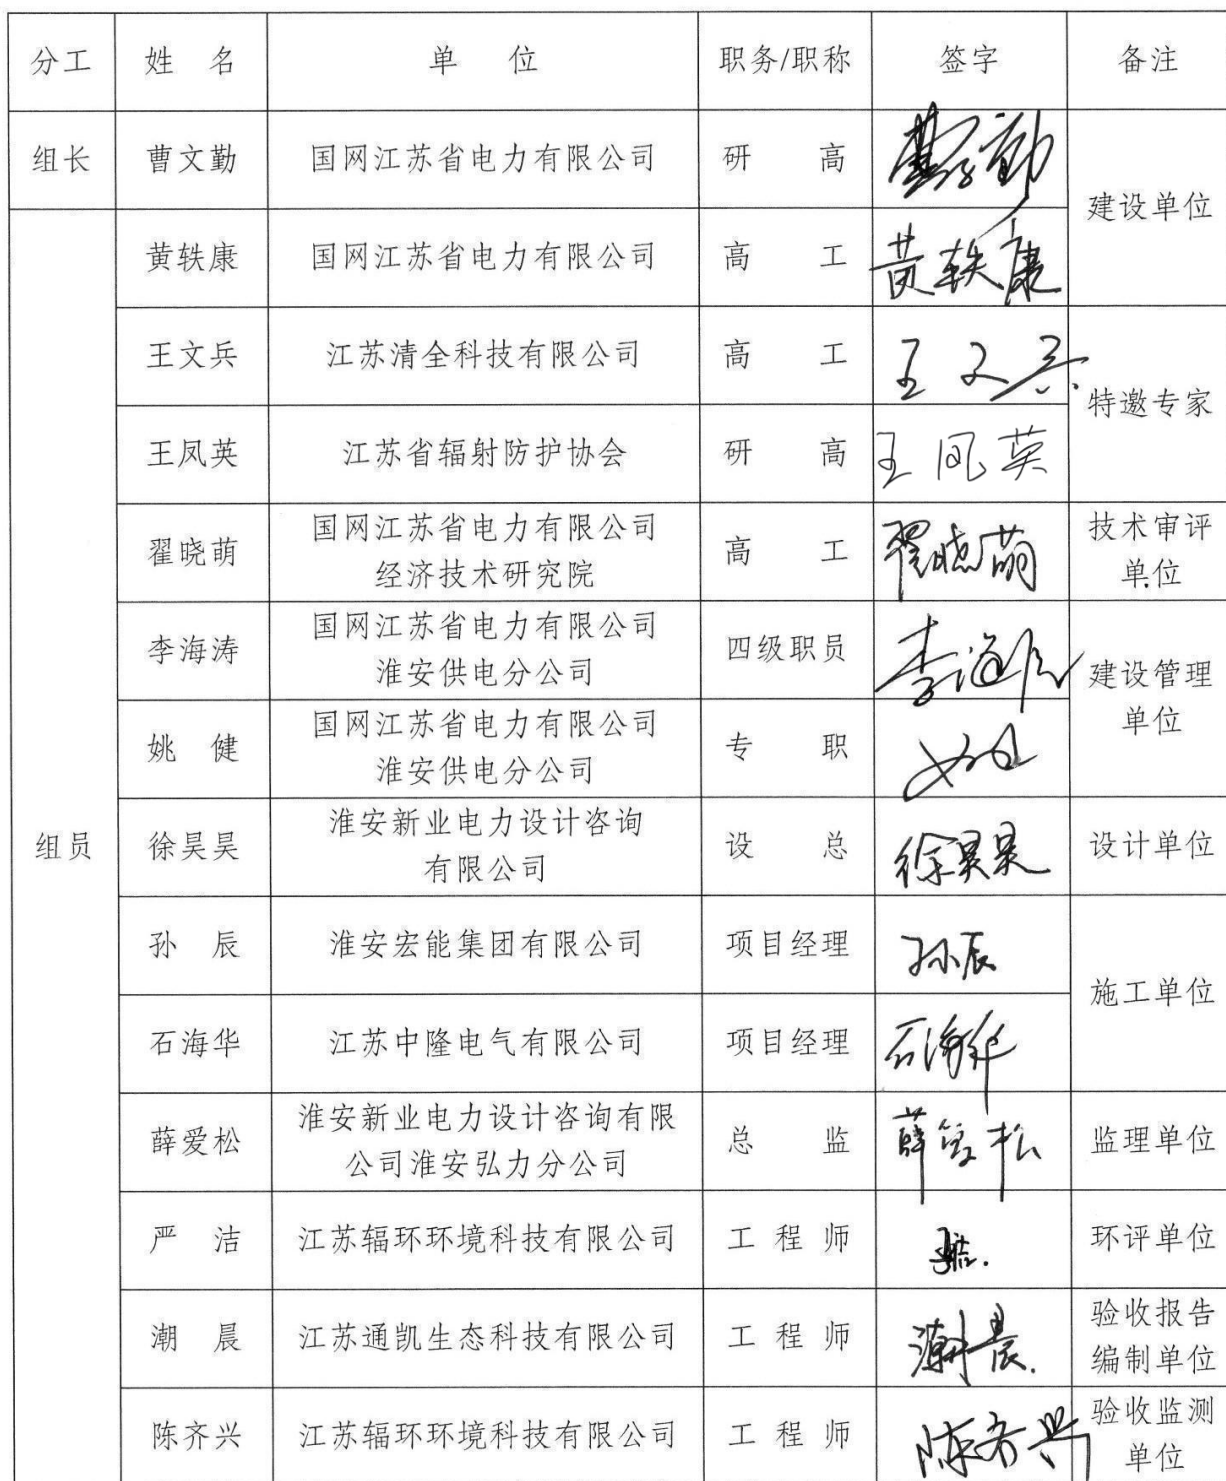 分工 姓 名 单 位 职务/职称 签字 备注
组长 曹文勤 国网江苏省电力有限公司 研 高 曹文勤
建设单位
黄轶康 国网江苏省电力有限公司 高 工 黄轶康
王文兵 江苏清全科技有限公司 高 工 王文兵
特邀专家
王凤英 江苏省辐射防护协会 研 高 王凤英
国网江苏省电力有限公司
经济技术研究院
翟晓萌 高 工 翟晓萌
技术审评
单位
国网江苏省电力有限公司
淮安供电分公司
李海涛 四级职员 李海涛
建设管理
单位
国网江苏省电力有限公司
淮安供电分公司
姚 健 专 职
组员 徐昊昊
淮安新业电力设计咨询
有限公司
设 总 徐昊昊 设计单位
孙 辰 淮安宏能集团有限公司 项目经理 孙辰
施工单位
石海华 江苏中隆电气有限公司 项目经理 石海华
薛爱松
淮安新业电力设计咨询有限
公司淮安弘力分公司
总 监 薛爱松 监理单位
严 洁 江苏辐环环境科技有限公司 工 程 师 环评单位
潮 晨 江苏通凯生态科技有限公司 工 程 师 潮晨
验收报告
编制单位
陈齐兴 江苏辐环环境科技有限公司 工 程 师 陈齐兴
验收监测
单位